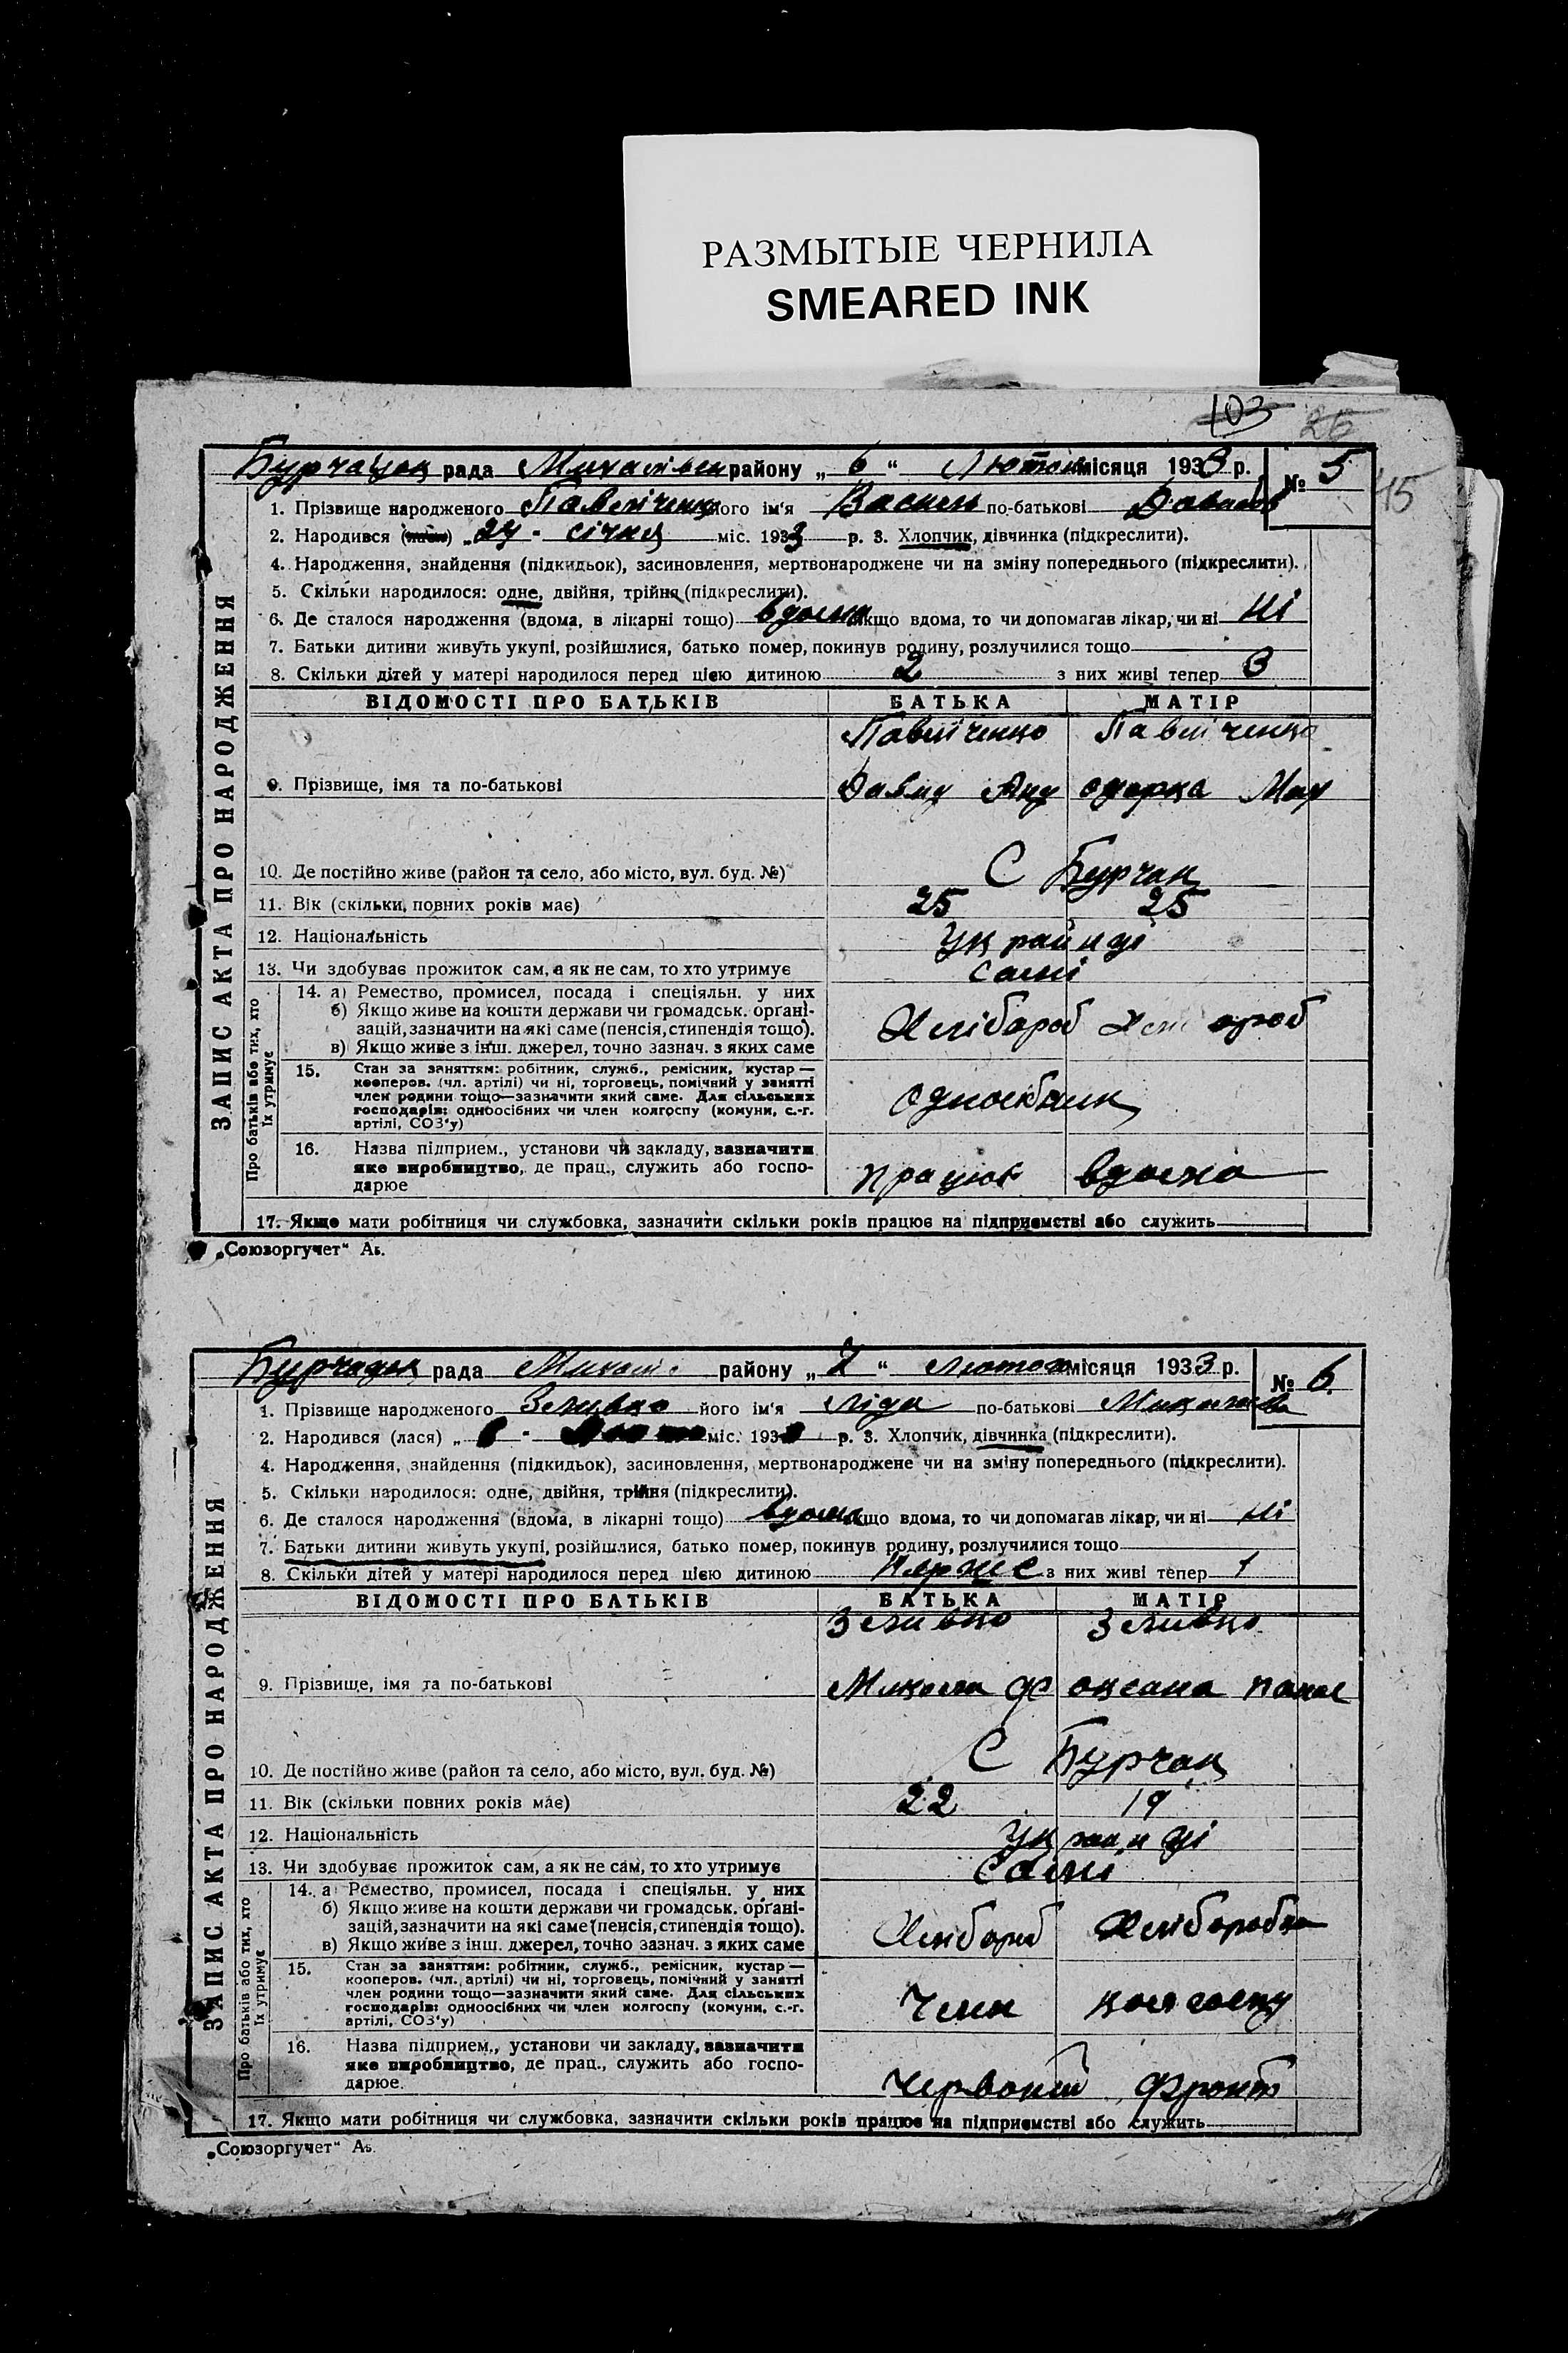 РАЗМЫТЫЕ ЧЕРНИЛА
SMEARED INK
103 26
рада району „ 6 “ Лютого місяця 1933 р. № 5
15
1. Прізвище народженого Павліченко його ім‘я Василь по-батькові Давидов
2. Народився „ 24 " січня міс. 1933 р. 3. Хлопчик, дівчинка (підкреслити).
4. Народження, знайдення (підкидьок), засиновлення, мертвонароджене чи на зміну попереднього (підкреслити).
5. Скільки народилося: одне, двійня, трійня (підкреслити).
6. Де сталося народження (вдома, в лікарні тощо) вдома якщо вдома, то чи допомагав лікар, чи ні Ні
7. Батьки дитини живуть укупі, розійшлися, батько помер, покинув родину, розлучилися тощо
8. Скільки дітей у матері народилося перед цією дитиною 2 з них живі тепер 3
ЗАПИС АКТА ПРО НАРОДЖЕННЯ
ВІДОМОСТІ ПРО БАТЬКІВ БАТЬКА МАТІР
Павліченко Павліченко
9. Прізвище, імя та по-батькові Давид Анд Одарка Мар
10. Де постійно живе (район та село, або місто, вул. буд. №) С Бурчак
11. Вік (скільки повних років має) 25 25
12. Національність Українці
13. Чи здобуває прожиток сам, а як не сам, то хто утримує самі
Про батьків або тих, хто їх утримує
14. а) Ремество, промисел, посада і спеціяльн. у них
б) Якщо живе на кошти держави чи громадськ. орґані-
зацій, зазначити на які саме (пенсія, стипендія тощо). Хлібороб Хлібороб
в) Якщо живе з інш. джерел, точно зазнач. з яких саме
15. Стан за заняттям: робітник, служб., ремісник, кустар —
кооперов. (чл. артілі) чи ні, торговець, помічний у занятті
член родини тощо—зазначити який саме. Для сільських
господарів: одноосібних чи член колгоспу (комуни, с.-г.
артілі, СОЗ‘у)
16. Назва підприєм., установи чи закладу, зазначити
яке виробництво, де прац., служить або госпо- працює вдома
дарює
17. Якщо мати робітниця чи службовка, зазначити скільки років працює на підприємстві або служить
„Союзоргучет“ Аь.
рада району „ 7 “ лютого місяця 1933 р. № 6
1. Прізвище народженого Зеливко його ім‘я Ліда по-батькові Миколаєва
2. Народився (лася) „ " міс. 193 р. 3. Хлопчик, дівчинка (підкреслити).
4. Народження, знайдення (підкидьок), засиновлення, мертвонароджене чи на зміну попереднього (підкреслити).
5. Скільки народилося: одне, двійня, трійня (підкреслити).
6. Де сталося народження (вдома, в лікарні тощо) вдома якщо вдома, то чи допомагав лікар, чи ні Ні
7. Батьки дитини живуть укупі, розійшлися, батько помер, покинув родину, розлучилися тощо
8. Скільки дітей у матері народилося перед цією дитиною перше з них живі тепер 1
ЗАПИС АКТА ПРО НАРОДЖЕННЯ
ВІДОМОСТІ ПРО БАТЬКІВ БАТЬКА МАТІР
Зеливко Зеливко
9. Прізвище, імя та по-батькові Микола Ф Оксана Панас
10. Де постійно живе (район та село, або місто, вул. буд. №) С Бурчак
11. Вік (скільки повних років має) 22 19
12. Національність Українці
13. Чи здобуває прожиток сам, а як не сам, то хто утримує Самі
Про батьків або тих, хто їх утримує
14. а Ремество, промисел, посада і спеціяльн. у них
б) Якщо живе на кошти держави чи громадськ. орґані-
зацій, зазначити на які саме (пенсія, стипендія тощо). Хлібороб Хліборобка
в) Якщо живе з інш. джерел, точно зазнач. з яких саме
15. Стан за заняттям: робітник, служб., ремісник, кустар —
кооперов. (чл. артілі) чи ні, торговець, помічний у занятті
член родини тощо—зазначити який саме. Для сільських
господарів: одноосібних чи член колгоспу (комуни, с.-г. Член колгоспу
артілі, СОЗ‘у)
16. Назва підприєм., установи чи закладу, зазначити
яке виробництво, де прац., служить або госпо-
дарює. Червоний фронт
17. Якщо мати робітниця чи службовка, зазначити скільки років працює на підприємстві або служить
„Союзоргучет“ Аь.